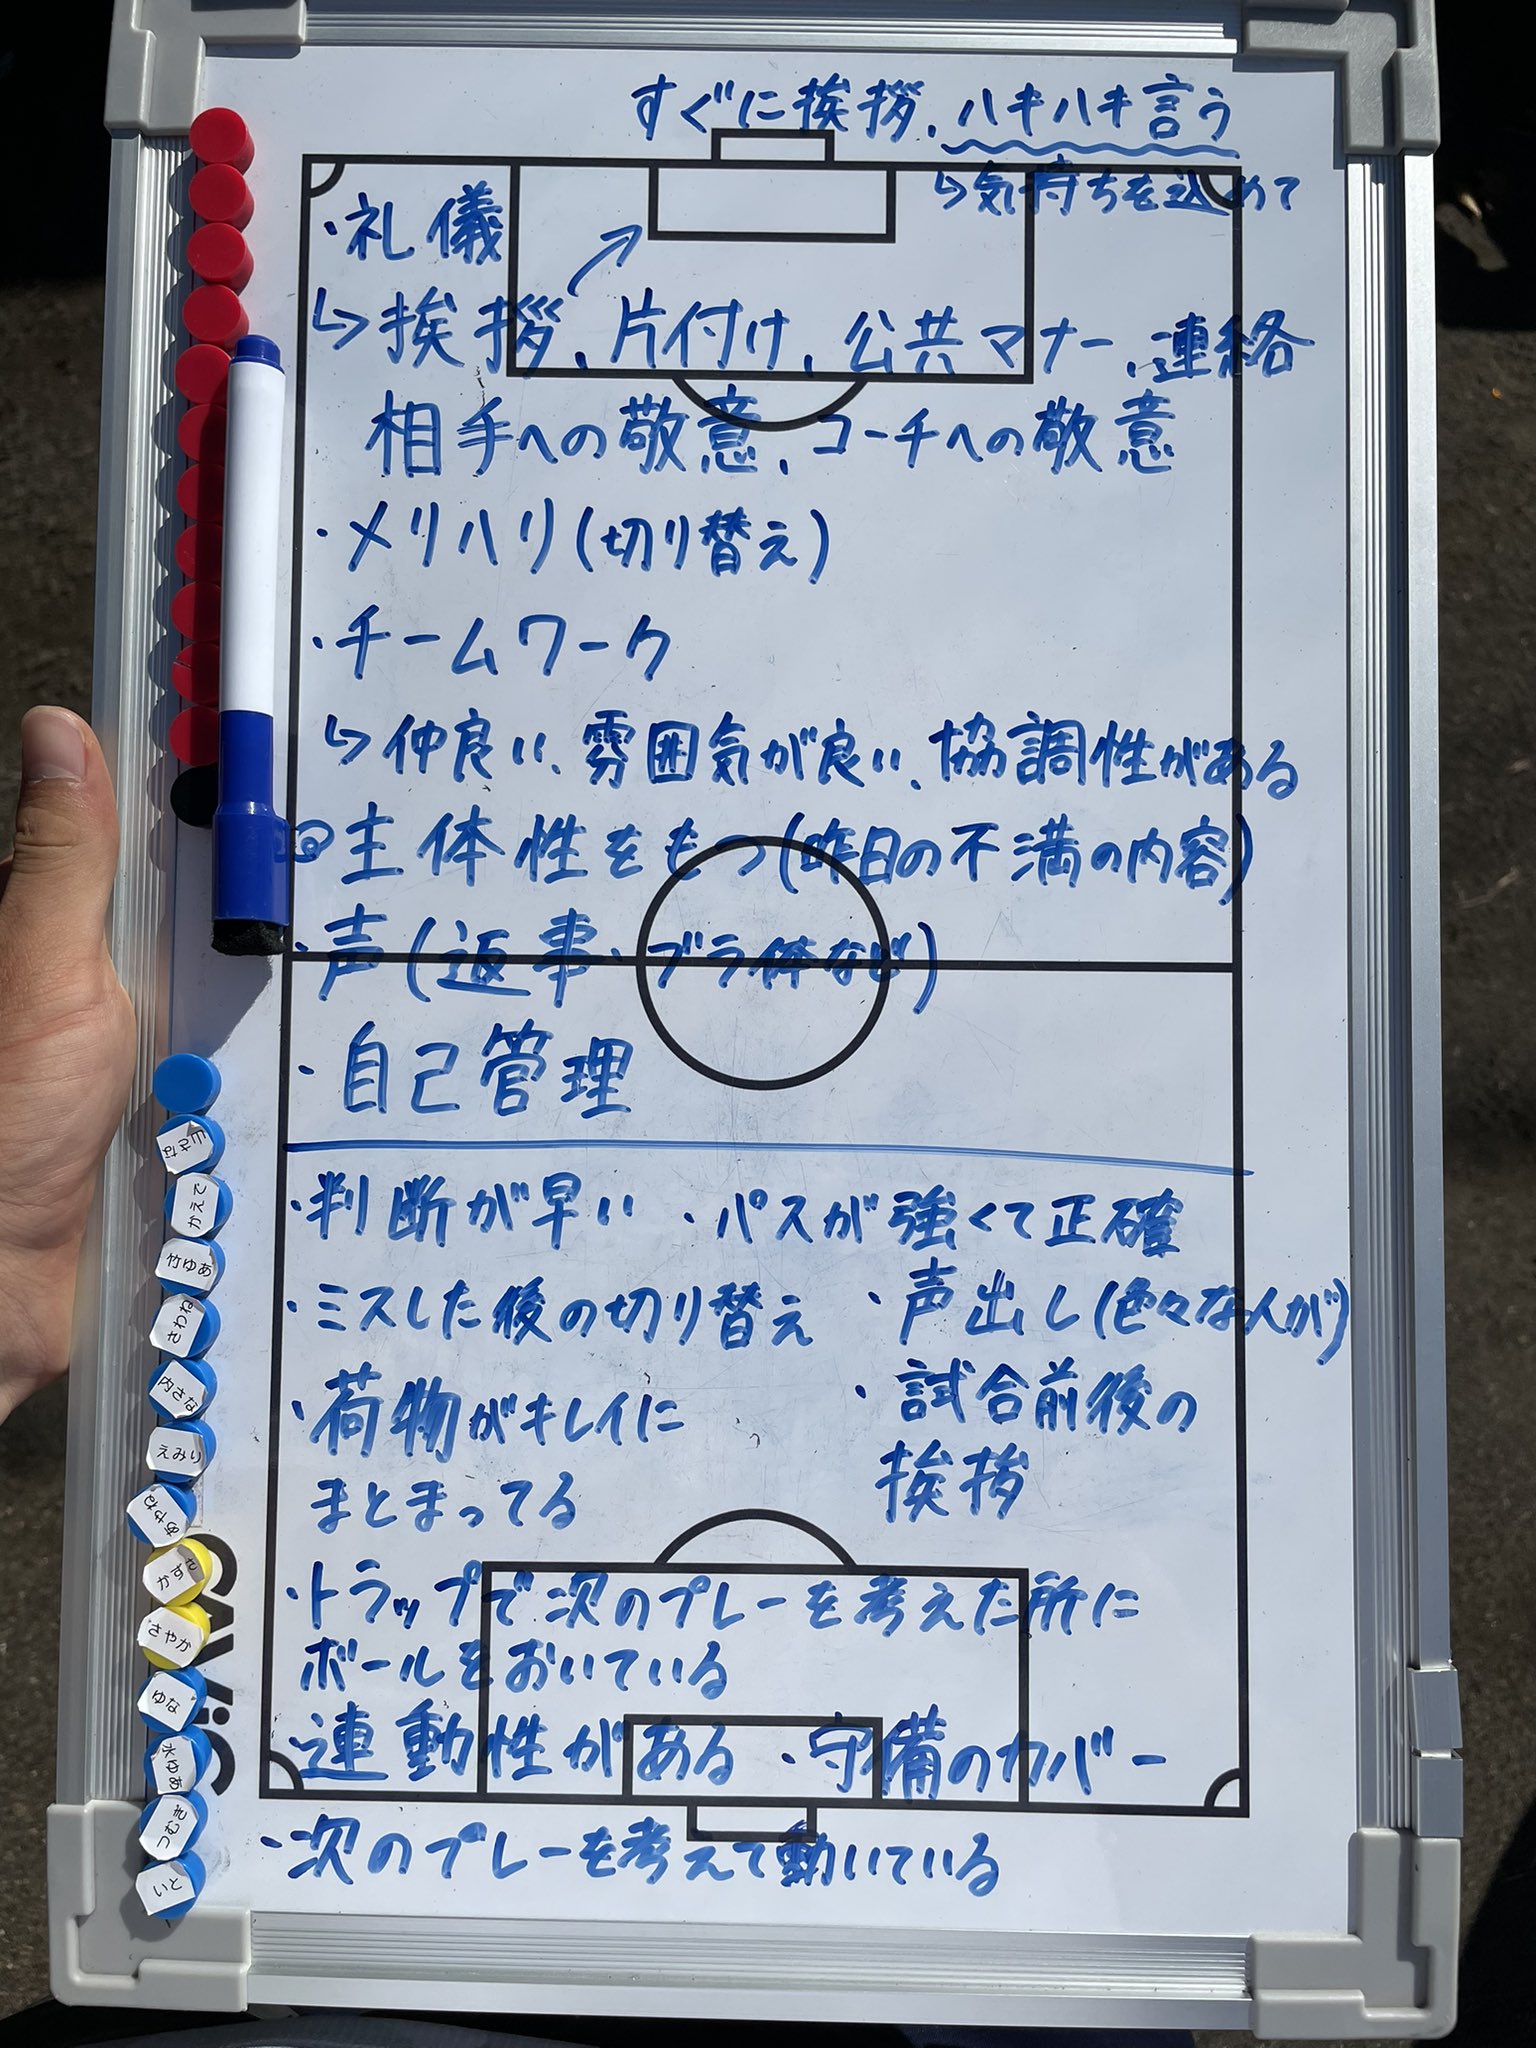 すぐに挨拶、ハキハキ言う
↳気持ちを込めて
・礼儀
↳挨拶、片付け、公共マナー、連絡
相手への敬意、コーチへの敬意
・メリハリ(切り替え)
・チームワーク
↳仲良い、雰囲気が良い、協調性がある
◎主体性をもつ(昨日の不満の内容)
・声(返事・ブラ体など)
・自己管理
・判断が早い ・パスが強くて正確
・ミスした後の切り替え ・声出し(色々な人が)
・荷物がキレイに
まとまってる
・試合前後の
挨拶
・トラップで次のプレーを考えた所に
ボールをおいている
・連動性がある ・守備のカバー
・次のプレーを考えて動いている
かえで
竹ゆあ
さわね
内さな
えみり
あやね
かずさ
さやか
ゆな
水ゆあ
つむぎ